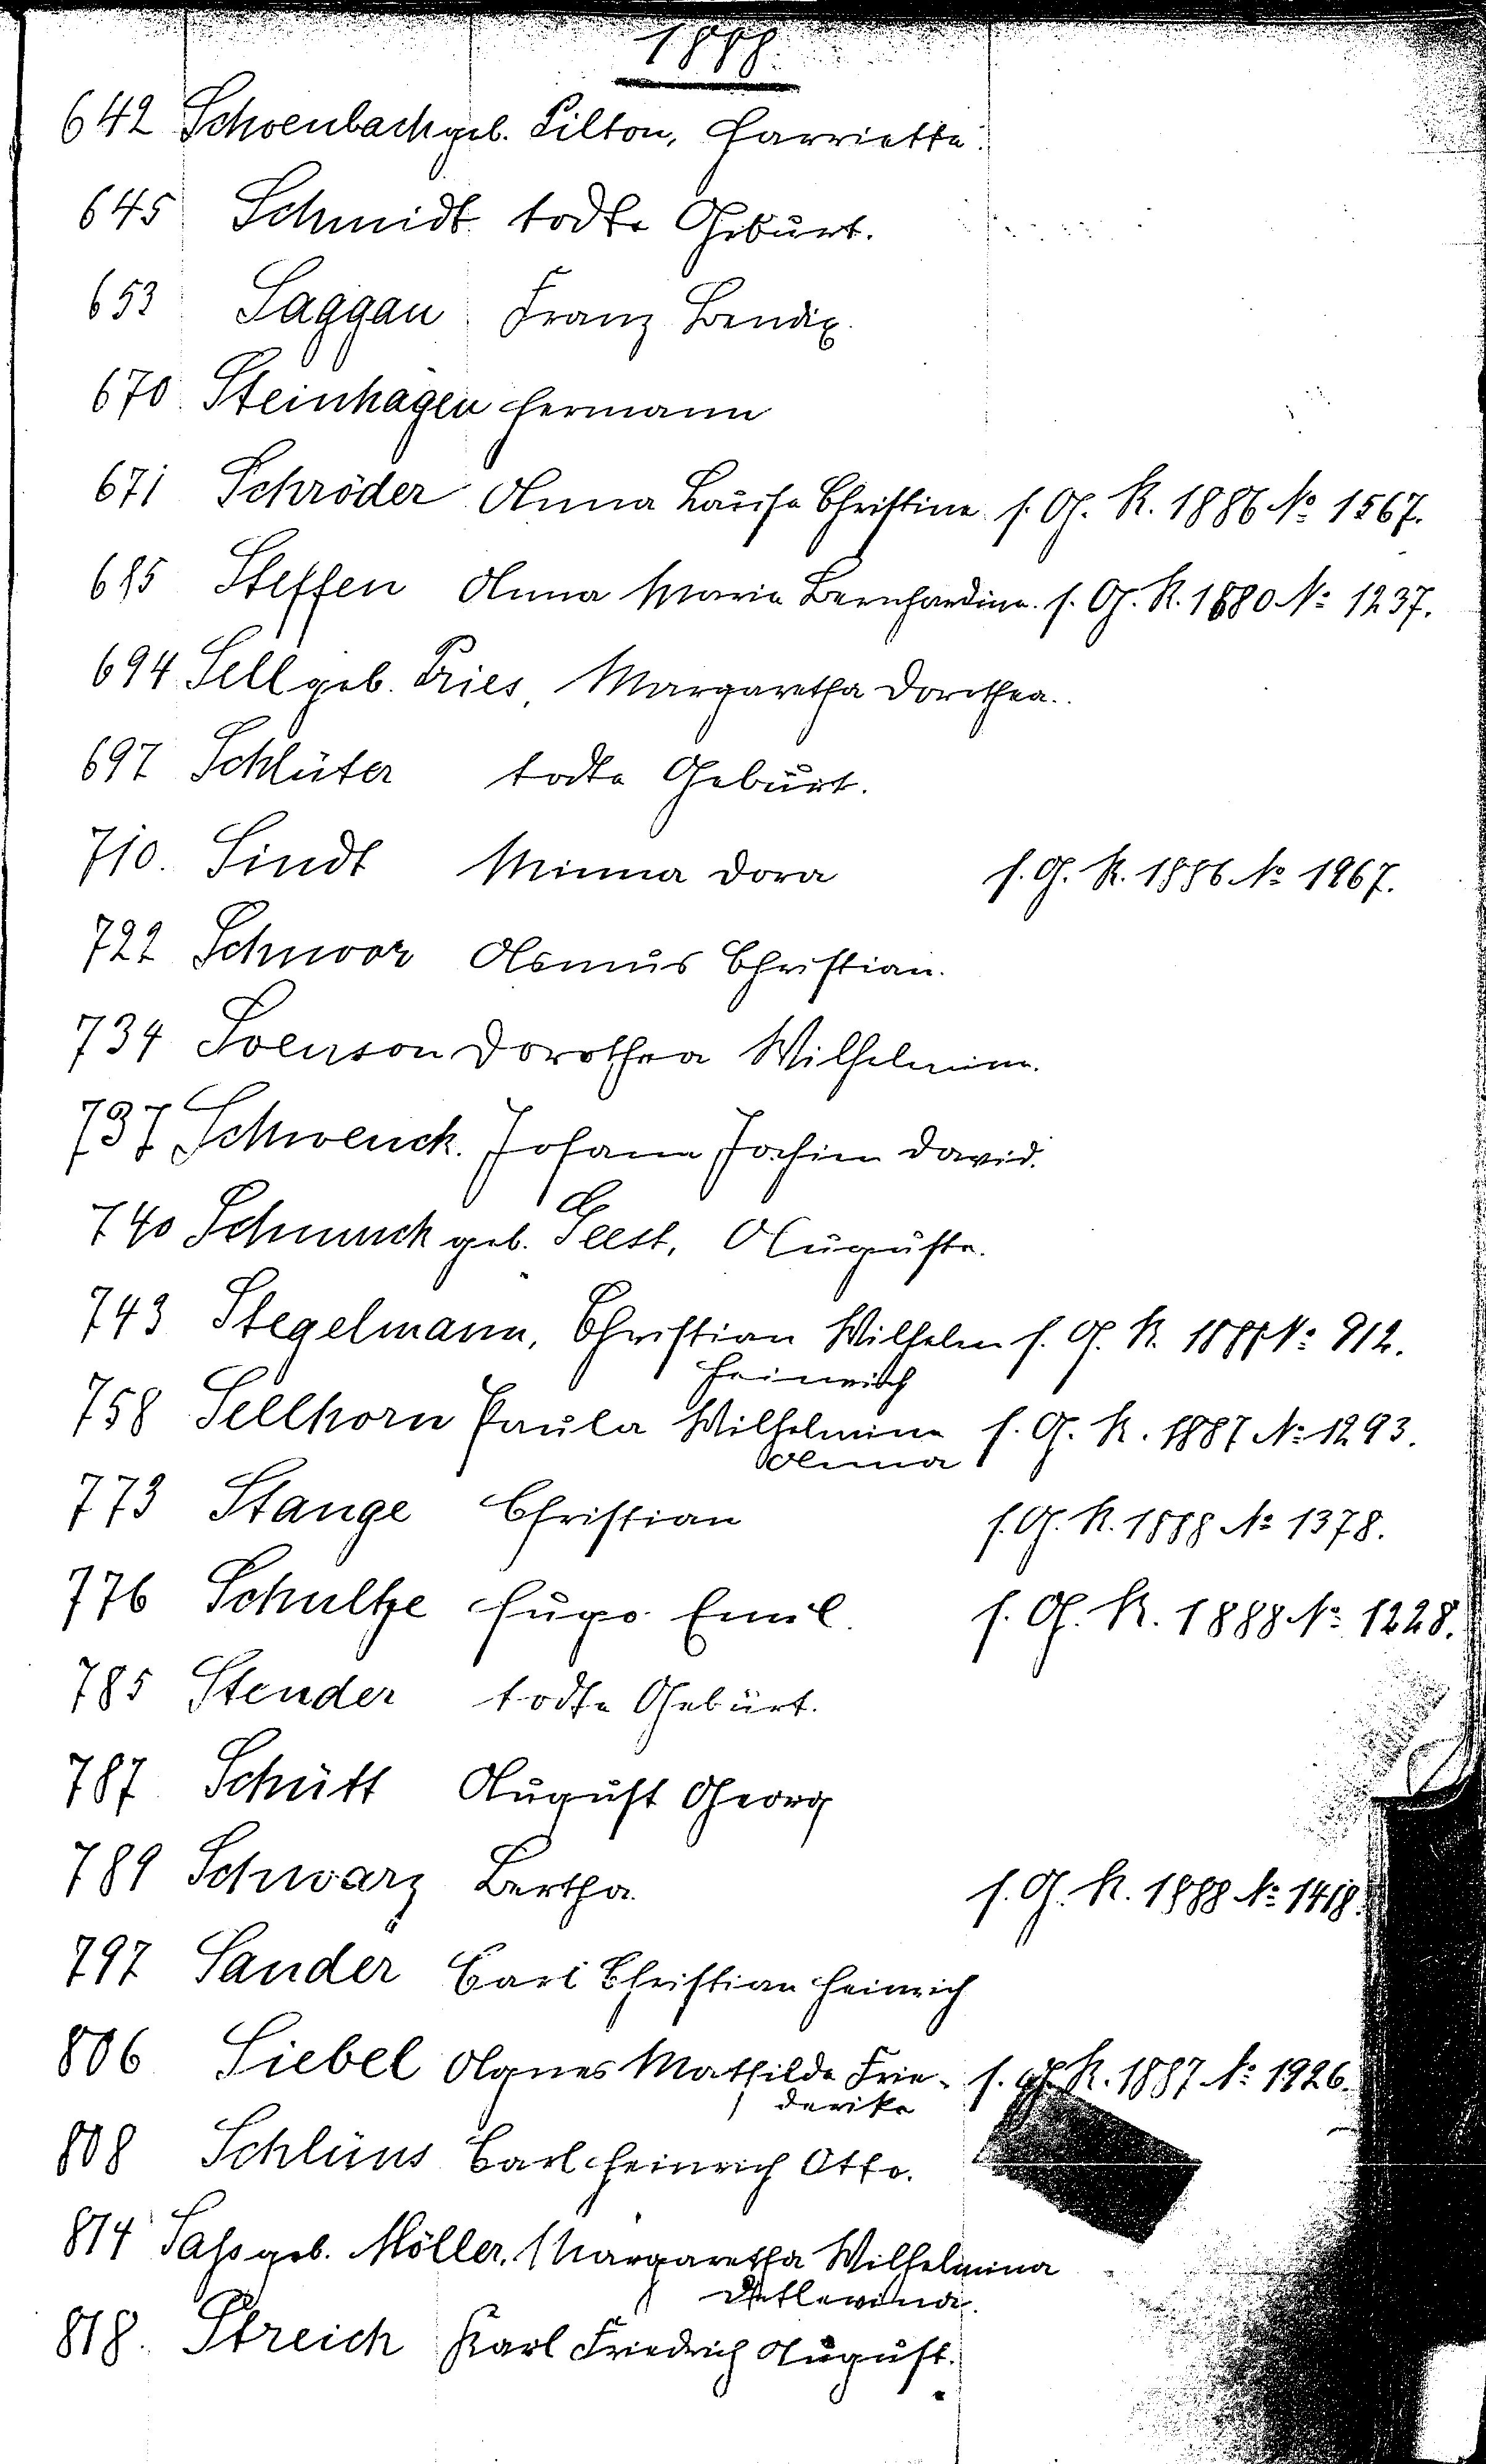 1888
642 Schoenbach geb. Pilton, Harriette.
645 Schmidt todte Geburt.
653 Saggau Franz Bendix.
670 Steinhagen Hermann
671 Schröder Anna Louise Christine s. G. R. 1886 No 1567.
685 Steffen Anna Maria Bernhardine. s. G. R. 1880 No 1237.
694 Sell geb. Pries, Margaretha Dorothea.
697 Schlüter todte Geburt.
710. Sindt Minna Dora s. G. R. 1886 No 1967.
722 Schnoor Asmus Christian.
734 Svenson Dorothea Wilhelmine.
737 Schwenck. Johann Jochim David.
740 Schmuck geb. Geest, Auguste.
743 Stegelmann, Christian Wilhelm s. G. R. 1888 No 912.
Heinrich
758 Sellhorn Paula Wilhelmine s. G. R. 1887 No 1293.
Anna
773 Stange Christian s. G. R. 1888 No 1378.
776 Schultze Hugo Emil. s. G. R. 1888 No 1228.
785 Stender todte Geburt.
787 Schütt August Georg
789 Schwarz Bertha. s. G. R. 1888 No 1418.
797 Sander Carl Christian Heinrich
806 Siebel Agnes Mathilde Frie- s. G. R. 1887 No 1926.
derike
808 Schlüns Carl Heinrich Otto.
814 Saß geb. Möller, Margaretha Wilhelmina
Detlewina.
818. Streich Karl Friedrich August.